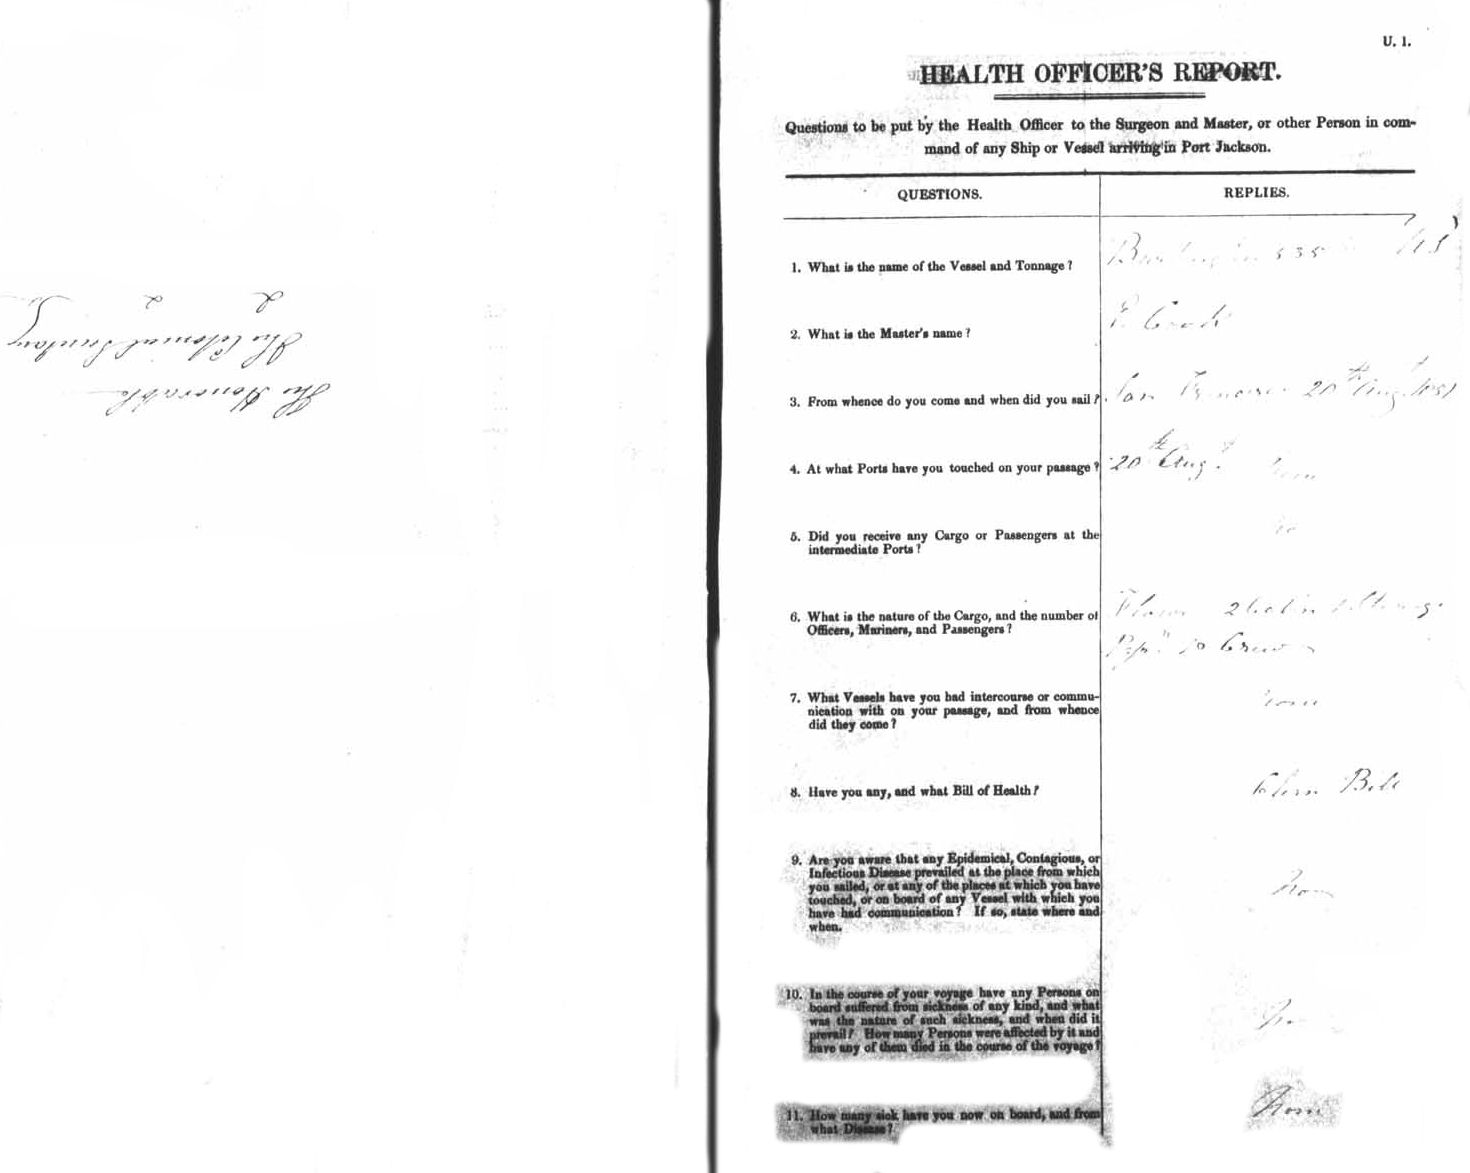 The Honorable
The Colonial Secretary
U. 1.
HEALTH OFFICER'S REPORT.
Questions to be put by the Health Officer to the Surgeon and Master, or other Person in com-
mand of any Ship or Vessel arriving in Port Jackson.
QUESTIONS.
REPLIES.
1. What is the name of the Vessel and Tonnage?
535
2. What is the Master's name?
3. From whence do you come and when did you sail?
San Francisco 20th Augt 1851
4. At what Ports have you touched on your passage?
20th Augt. None
5. Did you receive any Cargo or Passengers at the
intermediate Ports?
No
6. What is the nature of the Cargo, and the number of
Officers, Mariners, and Passengers?
Crew
7. What Vessels have you had intercourse or commu-
nication with on your passage, and from whence
did they come?
None
8. Have you any, and what Bill of Health?
Clean Bill
9. Are you aware that any Epidemical, Contagious, or
Infectious Disease prevailed at the place from which
you sailed, or at any of the places at which you have
touched, or on board of any Vessel with which you
have had communication? If so, state where and
when.
None
10. In the course of your voyage have any Persons on
board suffered from sickness of any kind, and what
was the nature of such sickness, and when did it
prevail? How many Persons were affected by it and
have any of them died in the course of the voyage?
No
11. How many sick have you now on board, and from
what Disease?
None